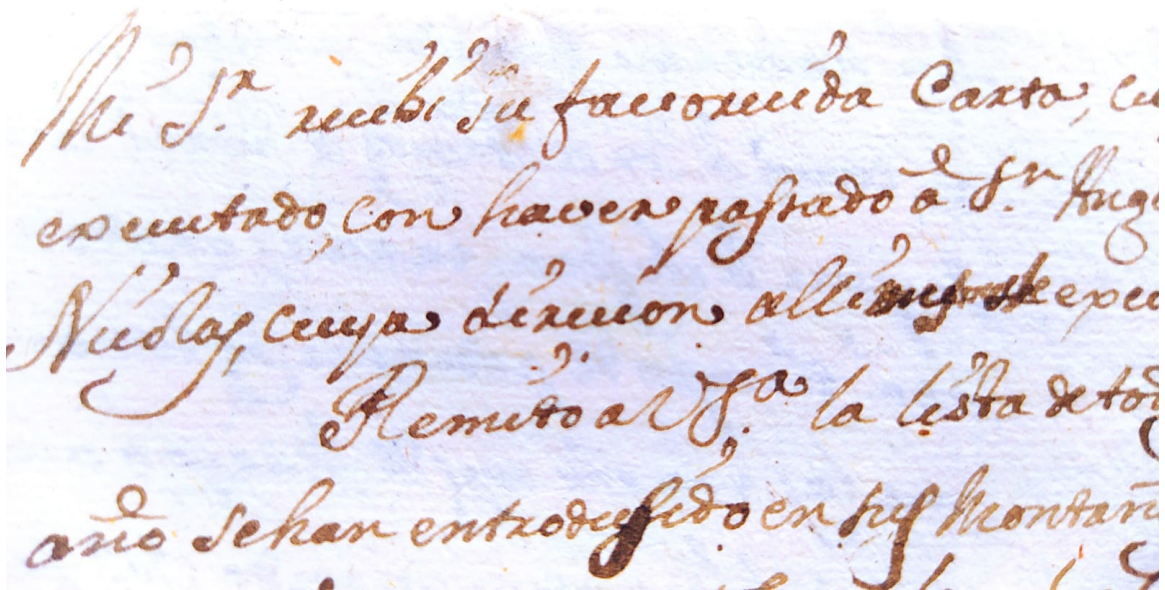 Mi Sr. recibi su favorecida Carta, cu
executado, con haver passado â Sr. Ange
Nicolas, cuya direcion alli
Remito a V Sa. la lista de tod
año se han entrodusido en sus Montañ